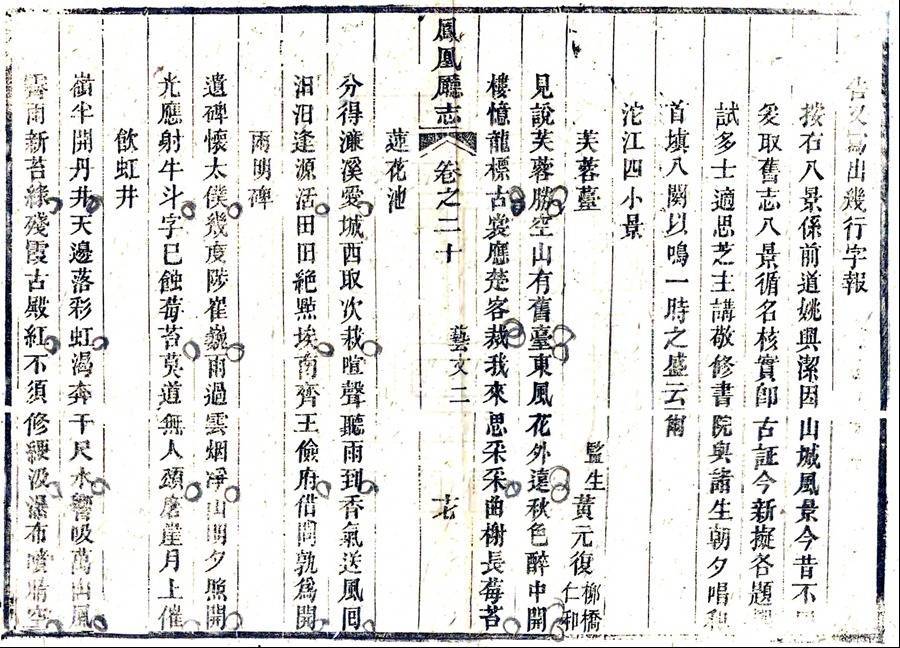 又寫出幾行字報
按右八景係前道姚興潔因山城風景今昔不
爰取舊志八景循名核實卽古証今新擬各題
試多士適思芝主講敬修書院與諸生朝夕唱和
首塡八闋以鳴一時之盛云爾
沱江四小景
芙蓉臺
監生黃元復柳橋仁和
見說芙蓉勝空山有舊臺東風花外遠秋色醉中開
樓憶龍標古裳應楚客裁我來思采采曲榭長莓苔
鳳凰廳志 卷之二十 藝文二 十七
蓮花池
分得濂溪愛城西取次栽喧聲聽雨到香氣送風回
汨汨逢源活田田絶點埃南齊王儉府借問孰爲開
雨明碑
遺碑懷太僕幾度陟崔巍雨過雲烟凈山間夕照開
光應射牛斗字已蝕莓苔莫道無人頟磨崖月上催
飲虹井
嶺半開丹井天邊落彩虹渴奔千尺水響吸萬山風
雨新苔綠殘霞古殿紅不須修綆汲瀑布噴晴空